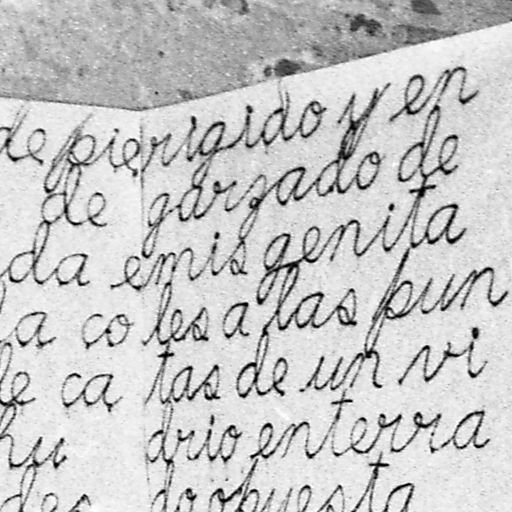 de pie rigido y en
de garzado de
da emis genita
a co les a las pun
le ca tas de un vi
hu drio enterra
des do o puesta